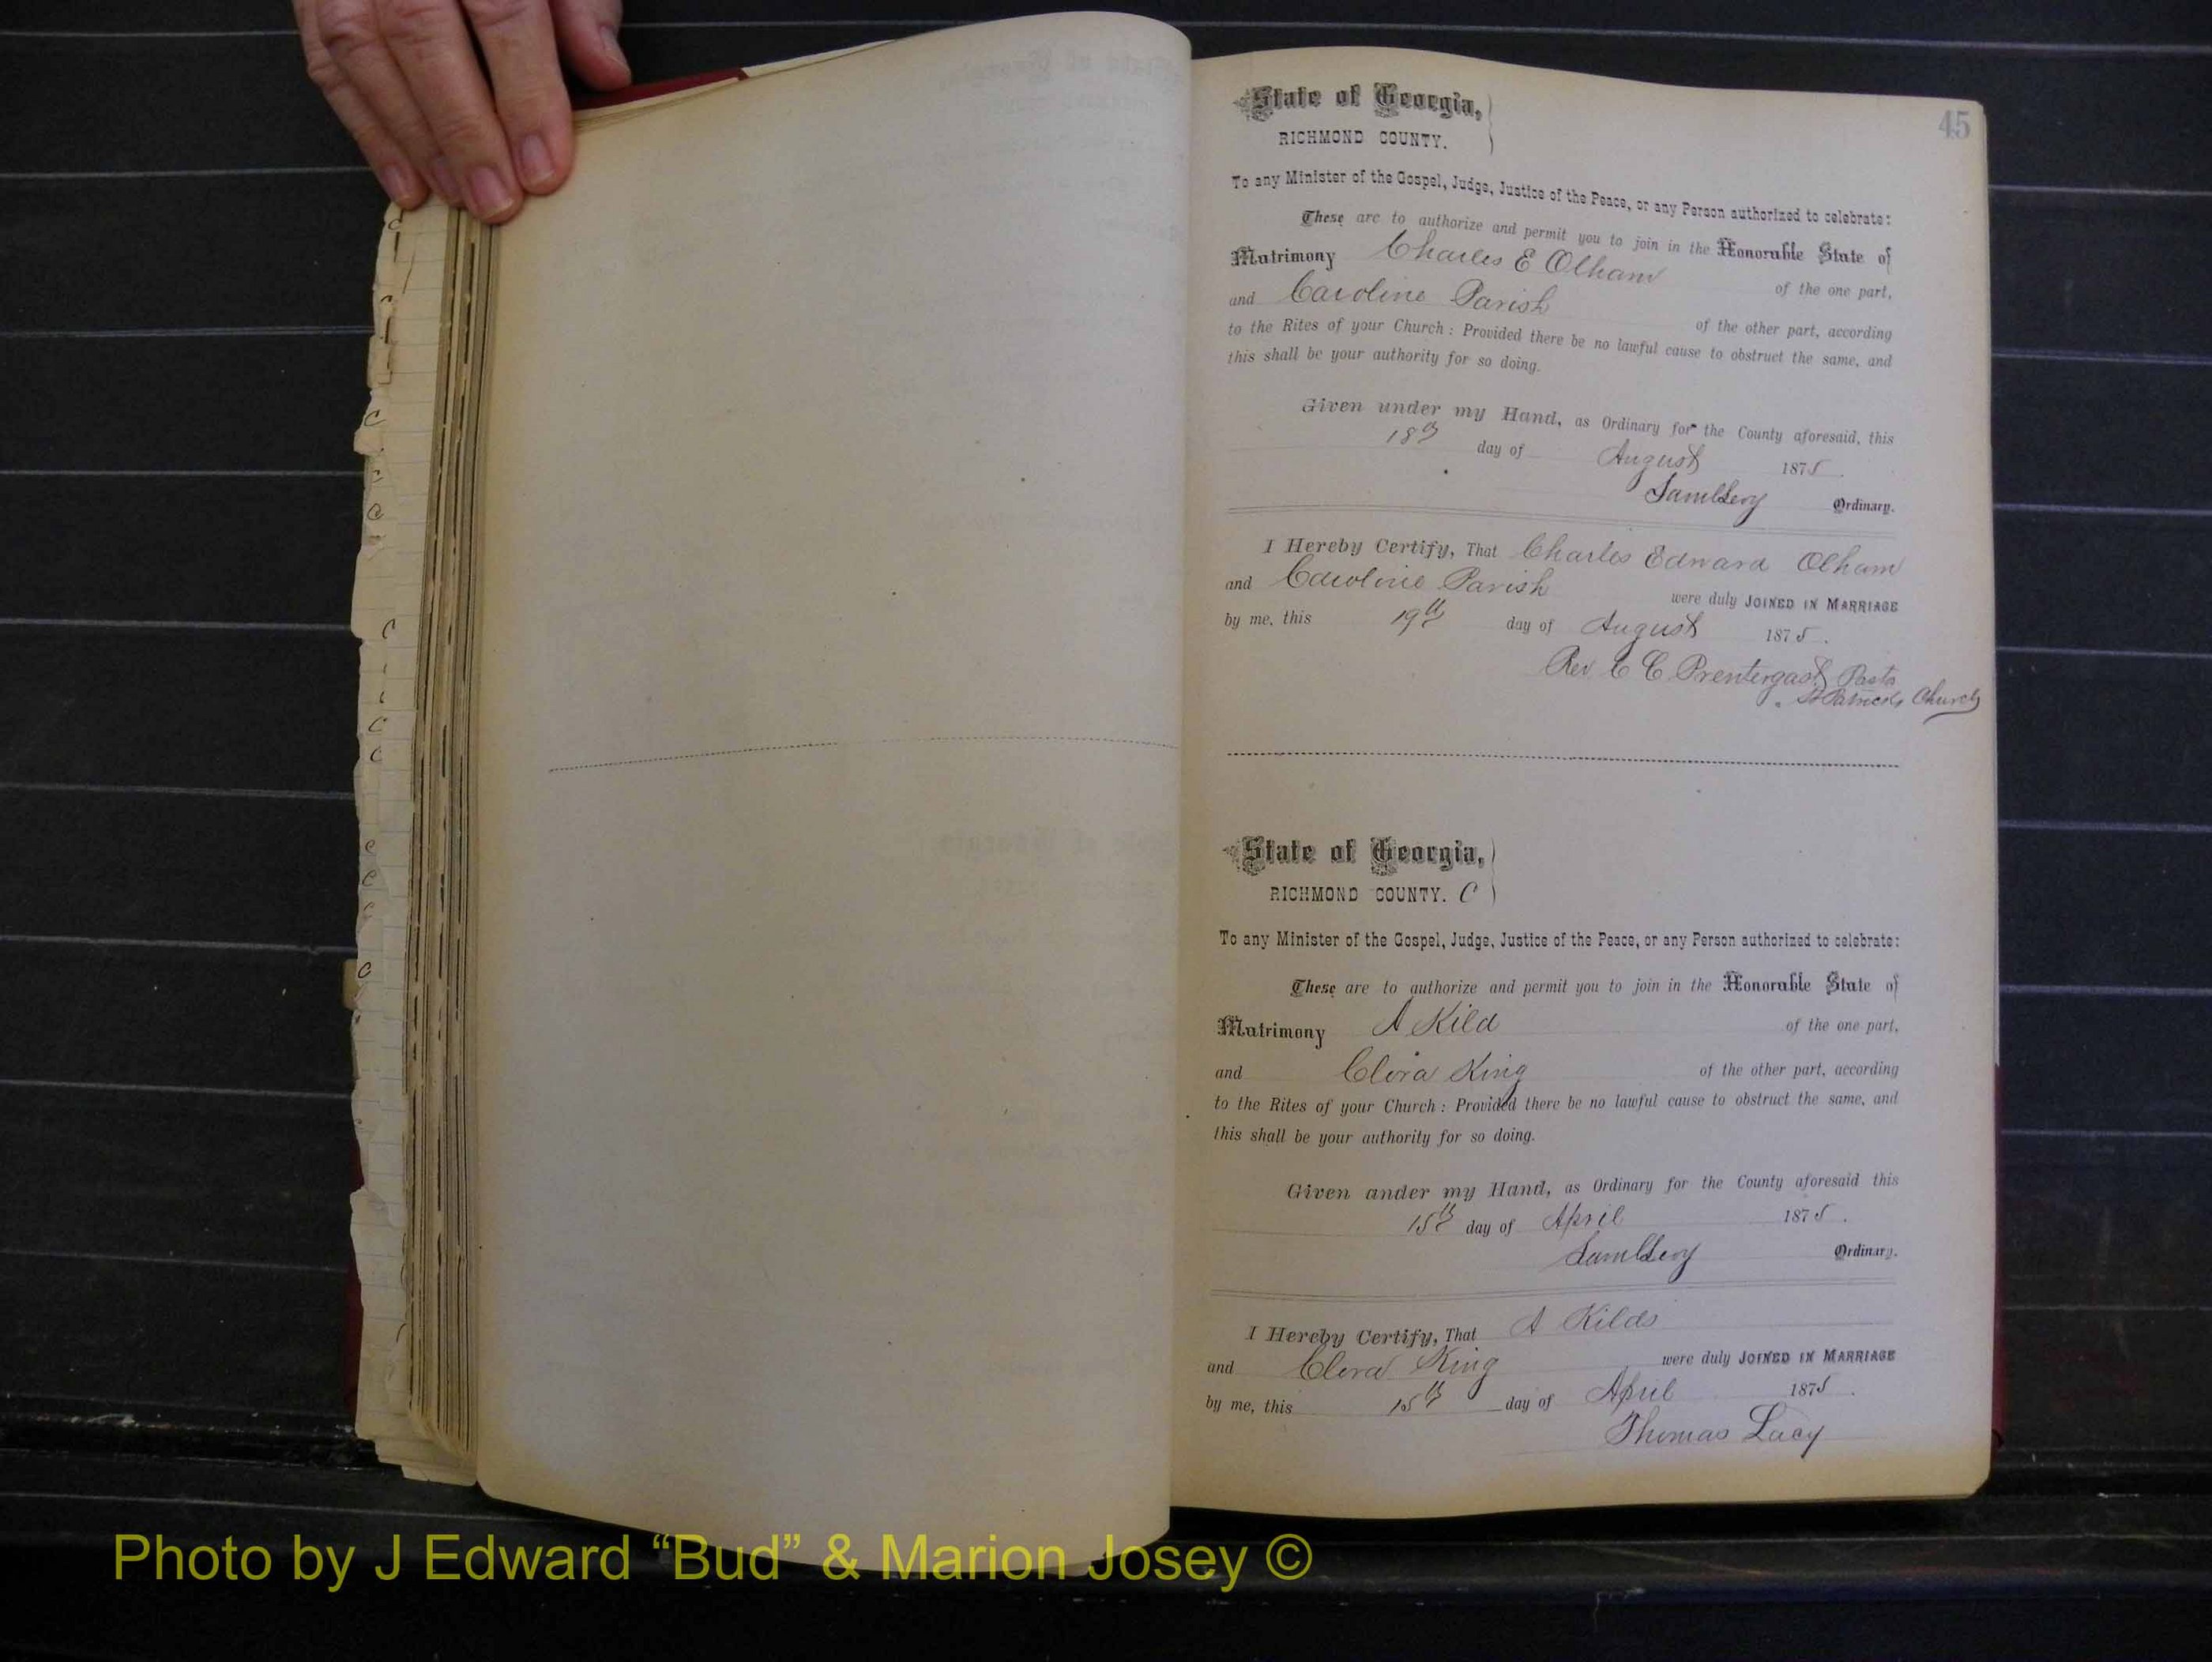 45
State of Georgia,
RICHMOND COUNTY.
To any Minister of the Gospel, Judge, Justice of the Peace, or any Person authorized to celebrate:
These are to authorize and permit you to join in the Honorable State of
Matrimony Charles E Olham of the one part,
and Caroline Parish of the other part, according
to the Rites of your Church: Provided there be no lawful cause to obstruct the same, and
this shall be your authority for so doing.
Given under my Hand, as Ordinary for the County aforesaid, this
18th day of August 1875
Saml Levy Ordinary.
I Hereby Certify, That Charles Edward Olham
and Caroline Parish were duly JOINED IN MARRIAGE
by me, this 19th day of August 1875.
Rev C C Prentergast Pastor
St Patricks Church
State of Georgia,
RICHMOND COUNTY. C
To any Minister of the Gospel, Judge, Justice of the Peace, or any Person authorized to celebrate:
These are to authorize and permit you to join in the Honorable State of
Matrimony A Kild of the one part,
and Clora King of the other part, according
to the Rites of your Church: Provided there be no lawful cause to obstruct the same, and
this shall be your authority for so doing.
Given under my Hand, as Ordinary for the County aforesaid this
15th day of April 1875.
Saml Levy Ordinary.
I Hereby Certify, That A Kilds
and Clora King were duly JOINED IN MARRIAGE
by me, this 15th day of April 1875.
Thomas Lacy
Photo by J Edward “Bud” & Marion Josey ©